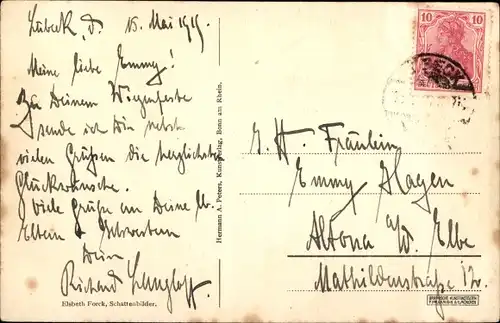 Lübeck, d. 15. Mai 1919.
Meine liebe Emmy!
Zu Deinem Wiegenfeste
sende ich Dir nebst
vielen Grüßen die herzlichsten
Glückwünsche.
Viele Grüße an Deine lb.
Eltern u. Schwestern
Dein
Richard
Elsbeth Forck, Schattenbilder.
Hermann A. Peters, Kunstverlag, Bonn am Rhein.
10 10
BECK
S. H. Fräulein
Emmy Hagen
Altona a/d. Elbe
Mathildenstraße 12.